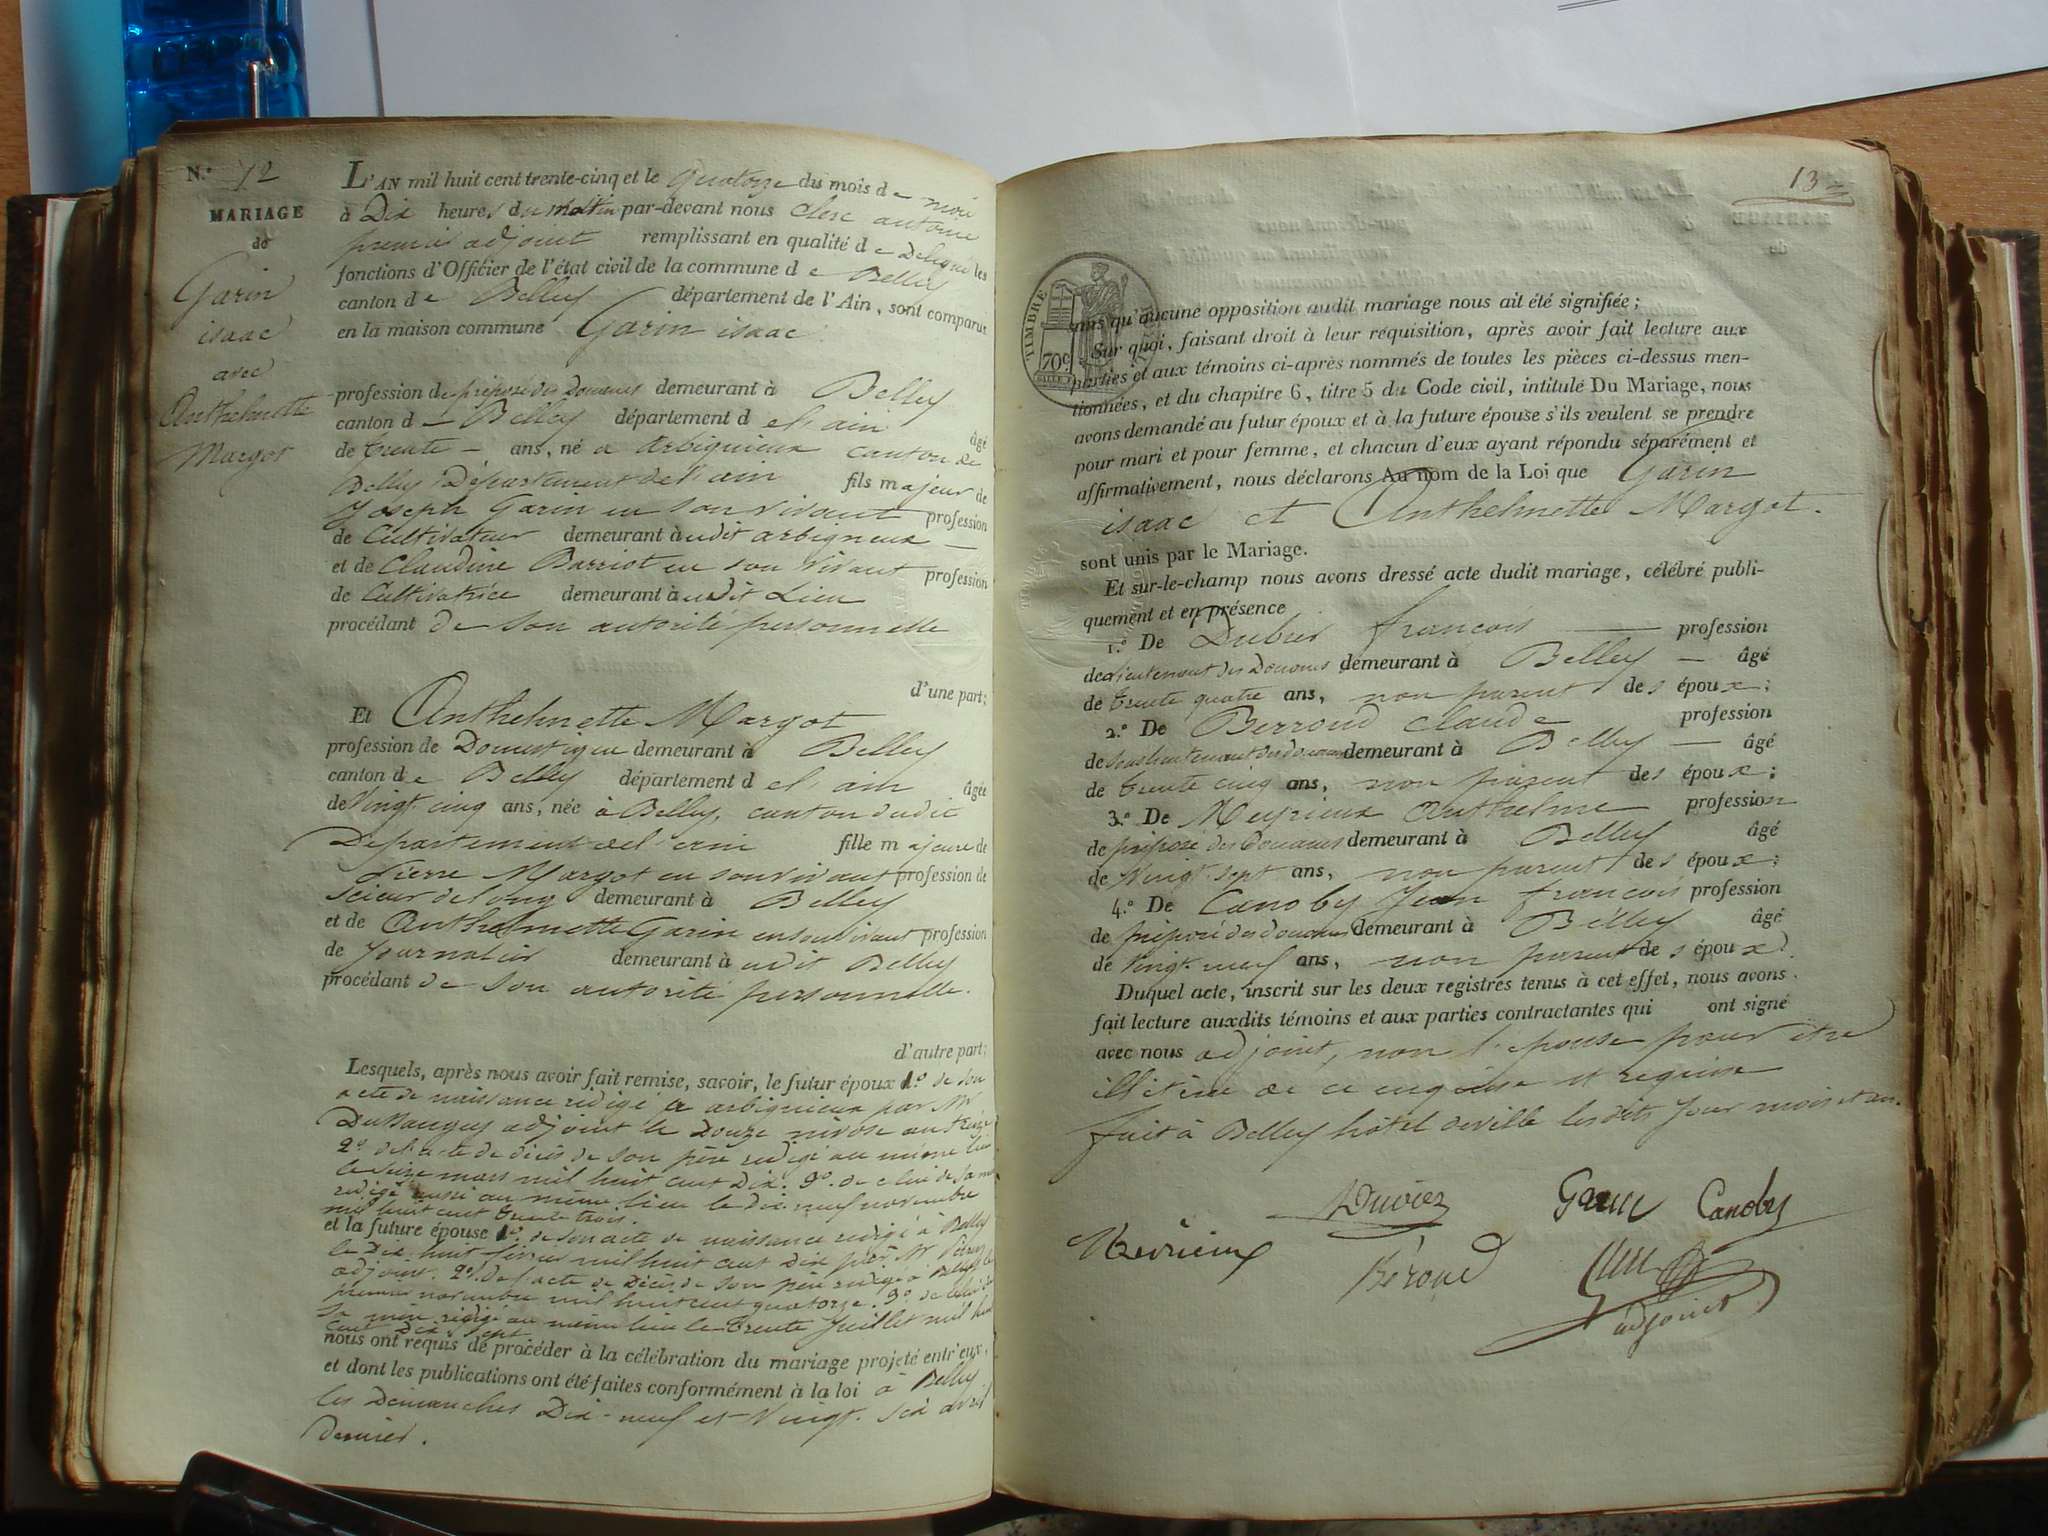 N.º 12
MARIAGE
de
Garin
isaac
avec
Anthelmette
Margot
L'AN mil huit cent trente-cinq et le quatorze du mois de mai
à Dix heures du matin par-devant nous Clerc antoine
premier adjoint remplissant en qualité de Délégué les
fonctions d'Officier de l'état civil de la commune de Belley
canton de Belley département de l'Ain, sont comparus
en la maison commune Garin isaac
profession de préposé des Douanes demeurant à Belley
canton d — Belley département de l'ain âgé
de trente — ans, né à arbignieux canton de
Belley Département de l'ain fils majeur de
Joseph Garin en son vivant profession
de Cultivateur demeurant audit arbignieux —
et de Claudine Barriot en son vivant profession
de Cultivatrice demeurant audit Lieu
procédant de son autorité personnelle
d'une part;
Et Anthelmette Margot
profession de Domestique demeurant à Belley
canton de Belley département de l'ain âgée
de Vingt cinq ans, née à Belley, canton dudit
Departement de l'ain fille majeure de
Pierre Margot en son vivant profession de
scieur de long demeurant à Belley
et de Anthelmette Garin en son vivant profession
de Journalier demeurant audit Belley
procédant de son autorité personnelle.
d'autre part;
Lesquels, après nous avoir fait remise, savoir, le futur époux 1.º de son
acte de naissance redigé a arbignieux par Mr
adjoint le Douze nivose an treize
2.º de l'acte de décès de son père redigé au même lieu
le seize mars mil huit cent Dix. 3.º de celui de sa mère
redigé aussi au même lieu le dix-neuf novembre
mil huit cent trente trois.
et la future épouse 1.º de son acte de naissance redigé à Belley
le Dix huit fevrier mil huit cent Dix par Mr
adjoint. 2.º de l'acte de Décès de son père redigé à Belley le
premier novembre mil huit cent quatorze. 3.º de celui de
sa mère redigé au même lieu le trente Juillet mil huit
cent Dix sept
nous ont requis de procéder à la célébration du mariage projeté entr'eux,
et dont les publications ont été faites conformément à la loi à Belley
les Dimanches Dix-neuf et Vingt-six avril
Dernier.
13
TIMBRE
70c
nus qu'aucune opposition audit mariage nous ait été signifiée;
Sur quoi, faisant droit à leur réquisition, après avoir fait lecture aux
parties et aux témoins ci-après nommés de toutes les pièces ci-dessus men-
tionnées, et du chapitre 6, titre 5 du Code civil, intitulé Du Mariage, nous
avons demandé au futur époux et à la future épouse s'ils veulent se prendre
pour mari et pour femme, et chacun d'eux ayant répondu séparément et
affirmativement, nous déclarons Au nom de la Loi que Garin
isaac et Anthelmette Margot.
sont unis par le Mariage.
Et sur-le-champ nous avons dressé acte dudit mariage, célébré publi-
quement et en présence
1.º De françois — profession
de lieutenant des Douanes demeurant à Belley — âgé
de trente quatre ans, non parent des époux;
2.º De Berroud Claude profession
de sous lieutenant des douanes demeurant à Belley — âgé
de trente cinq ans, non parent des époux;
3.º De Meyrieux Anthelme profession
de préposé des Douanes demeurant à Belley âgé
de Vingt sept ans, non parent des époux;
4.º De Canoby Jean françois profession
de préposé des douanes demeurant à Belley âgé
de Vingt-neuf ans, non parent des époux.
Duquel acte, inscrit sur les deux registres tenus à cet effet, nous avons
fait lecture auxdits témoins et aux parties contractantes qui ont signé
avec nous adjoint, non l'epouse pour etre
illiterée de ce enquise et requise
fait à Belley hôtel de ville lesdits Jour mois et an.
Garin Canoby
Mevrieux Béroud
adjoint